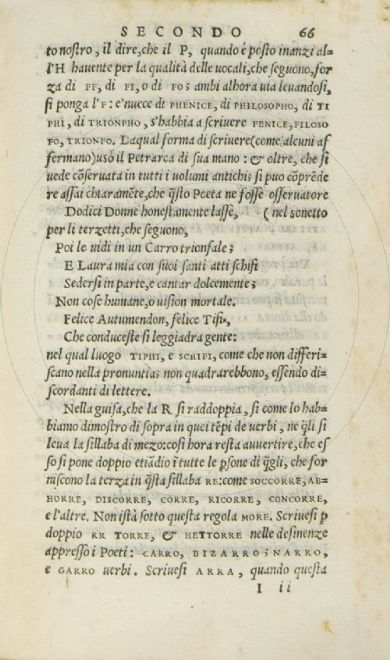 SECONDO 66
to nostro, il dire, che il P, quando è posto inanzi al=
l'H havente per la qualità delle vocali, che seguono, for
za di FF, di FI, o di FO; ambi alhora via levandosi,
si ponga l'F: e'nvece di PHENICE, di PHILOSOPHO, di TI
PHI, di TRIONPHO, s'habbia a scrivere FENICE, FILOSO
FO, TRIONFO. Laqual forma di scrivere (come alcuni af
fermano) usò il Petrarca di sua mano: & oltre, che si
vede cōservata in tutti i volumi antichi; si puo cōprēde
re assai chiaramēte, che q̄sto Poeta ne fosse osservatore
Dodici Donne honestamente lasse, ( nel sonetto
per li terzetti, che seguono,
Poi le vidi in un Carro trionfale;
E Laura mia con suoi santi atti schifi
Sedersi in parte, e cantar dolcemente;
Non cose humane, o vision mortale.
Felice Autumendon, felice Tifi,
Che conduceste sì leggiadra gente:
nel qual luogo TIPHI, e SCHIFI, come che non differi=
scano nella pronuntia; non quadrarebbono, essendo di=
scordanti di lettere.
Nella guisa, che la R si raddoppia, si come lo hab=
biamo dimostro di sopra in quei tēpi de verbi, ne q̄li si
leva la sillaba di mezo: così hora resta avvertire, che es
so si pone doppio etiādio ī tutte le p̱sone di q̄gli, che for
niscono la terza in q̄sta sillaba RE: come SOCCORRE, AB=
HORRE, DISCORRE, CORRE, RICORRE, CONCORRE,
e l'altre. Non istà sotto questa regola MORE. Scrivesi p̱
doppio RR TORRE, & HETTORRE nelle desinenze
appresso i Poeti: CARRO, BIZARRO; NARRO,
e GARRO verbi. Scrivesi ARRA, quando questa
I ii